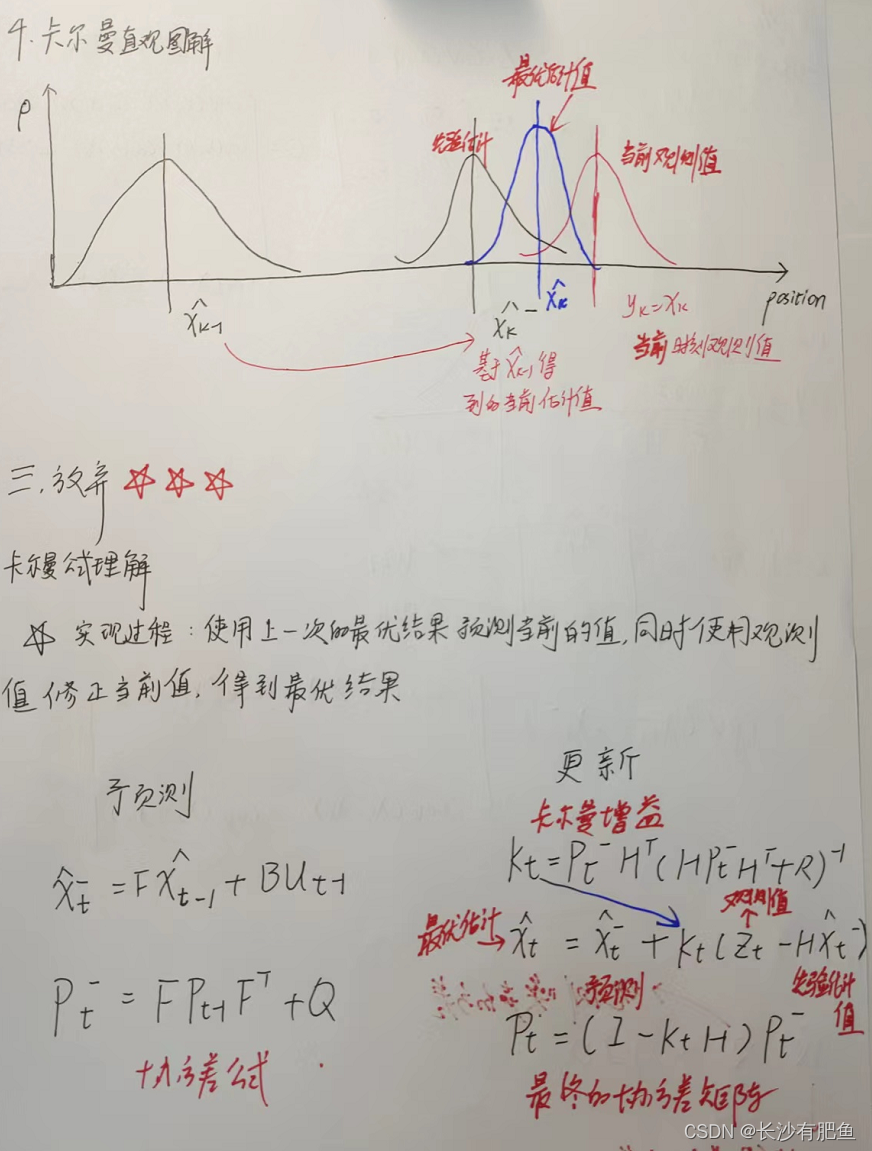 4. 卡尔曼直观图解
最优估计值
ρ
先验估计
当前观测值
X̂ₖ₋₁
X̂ₖ⁻
X̂ₖ
yₖ=xₖ
position
当前时刻观测值
基于X̂ₖ₋₁得
到的当前估计值
三.放弃 ☆☆☆
卡尔曼公式理解
☆ 实现过程:使用上一次的最优结果预测当前的值,同时使用观测
值修正当前值,得到最优结果
预测
X̂ₜ⁻ = FX̂ₜ₋₁ + BUₜ₋₁
Pₜ⁻ = FPₜ₋₁Fᵀ + Q
协方差公式
更新
卡尔曼增益
Kₜ = Pₜ⁻Hᵀ(HPₜ⁻Hᵀ+R)⁻¹
观测值
最优估计→ X̂ₜ = X̂ₜ⁻ + Kₜ(Zₜ - HX̂ₜ⁻)
预测
先验估计
值
Pₜ = (I - KₜH)Pₜ⁻
最终的协方差矩阵
CSDN @长沙有肥鱼